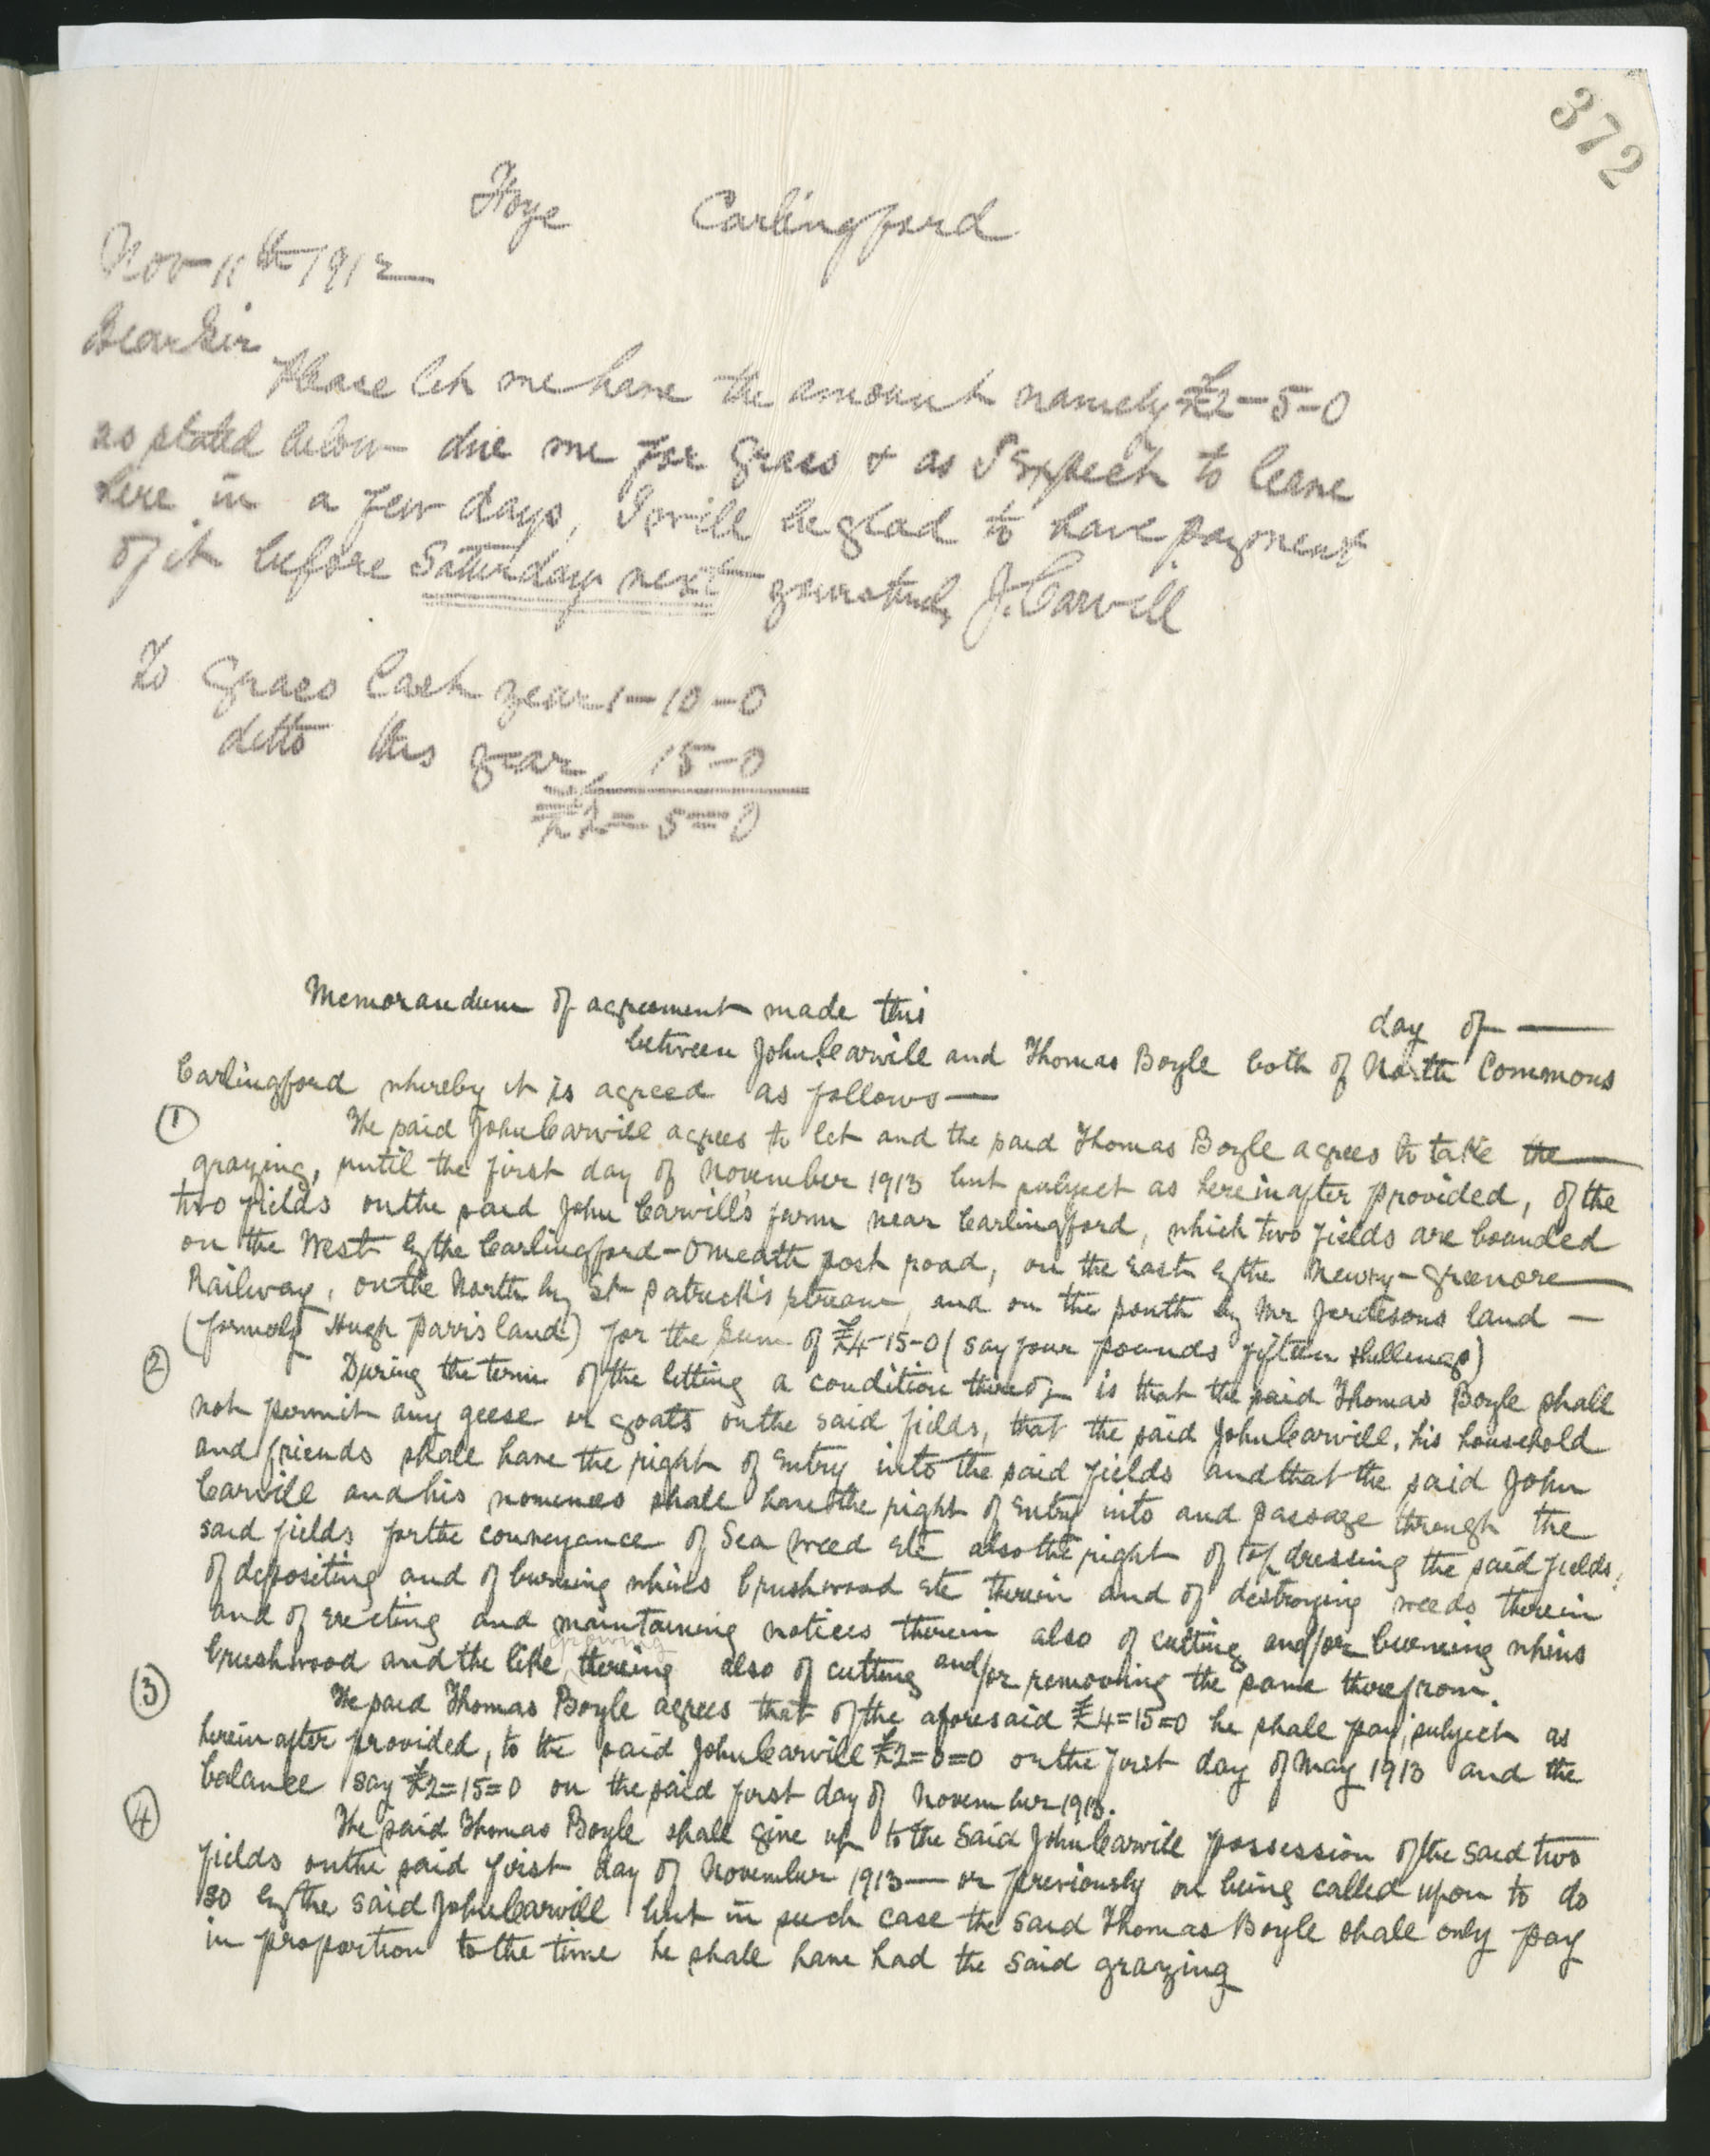 372
Hoye Carlingford
Nov 11th 1912
Dear Sir
Please let me have the amount namely £2-5-0
as stated below due me for Grass & as I expect to leave
here in a few days, I will be glad to have payment
of it before Saturday next yours truly J. Carvill
To Grass last year 1-10-0
ditto this year 15-0
£2=5=0
Memorandum of agreement made this day of —
between John Carvill and Thomas Boyle both of North Commons
Carlingford whereby it is agreed as follows —
(1) The said John Carvill agrees to let and the said Thomas Boyle agrees to take the —
grazing, until the first day of November 1913 but subject as hereinafter provided, of the
two fields on the said John Carvill's farm near Carlingford, which two fields are bounded
on the West by the Carlingford-Omeath post road, on the East by the Newry-Greenore —
Railway, on the North by St Patrick's stream, and on the south by Mr land —
(formerly Hugh Parris land) for the sum of £4-15-0 (say four pounds fifteen shillings)
(2) During the term of the letting a condition thereof is that the said Thomas Boyle shall
not permit any geese or goats on the said fields, that the said John Carvill, his household
and friends shall have the right of entry into the said fields and that the said John
Carvill and his nominees shall have the right of entry into and passage through the
said fields for the conveyance of Sea Weed etc also the right of top dressing the said fields,
of depositing and of burning whins brushwood etc therein and of destroying weeds therein
and of erecting and maintaining notices therein also of cutting and/or burning whins
brushwood and the like growing thereing also of cutting and/or removing the same therefrom.
(3) The said Thomas Boyle agrees that of the aforesaid £4=15=0 he shall pay, subject as
hereinafter provided, to the said John Carvill £2=0=0 on the first day of May 1913 and the
balance say £2=15=0 on the said first day of November 1913.
(4) The said Thomas Boyle shall give up to the said John Carvill possession of the said two
fields on the said first day of November 1913 — or previously on being called upon to do
so by the said John Carvill but in such case the said Thomas Boyle shall only pay
in proportion to the time he shall have had the said grazing